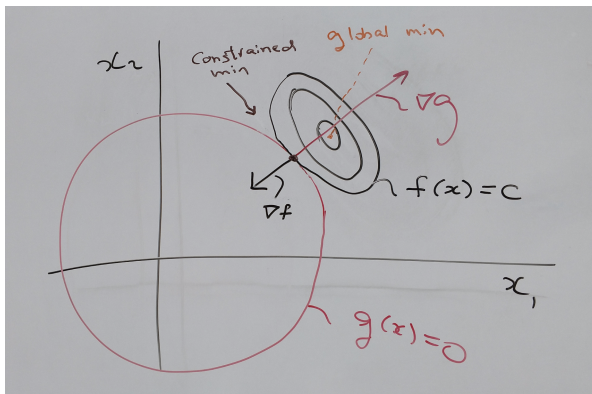 x₂
Constrained
min
global min
∇g
f(x)=c
∇f
x₁
g(x)=0